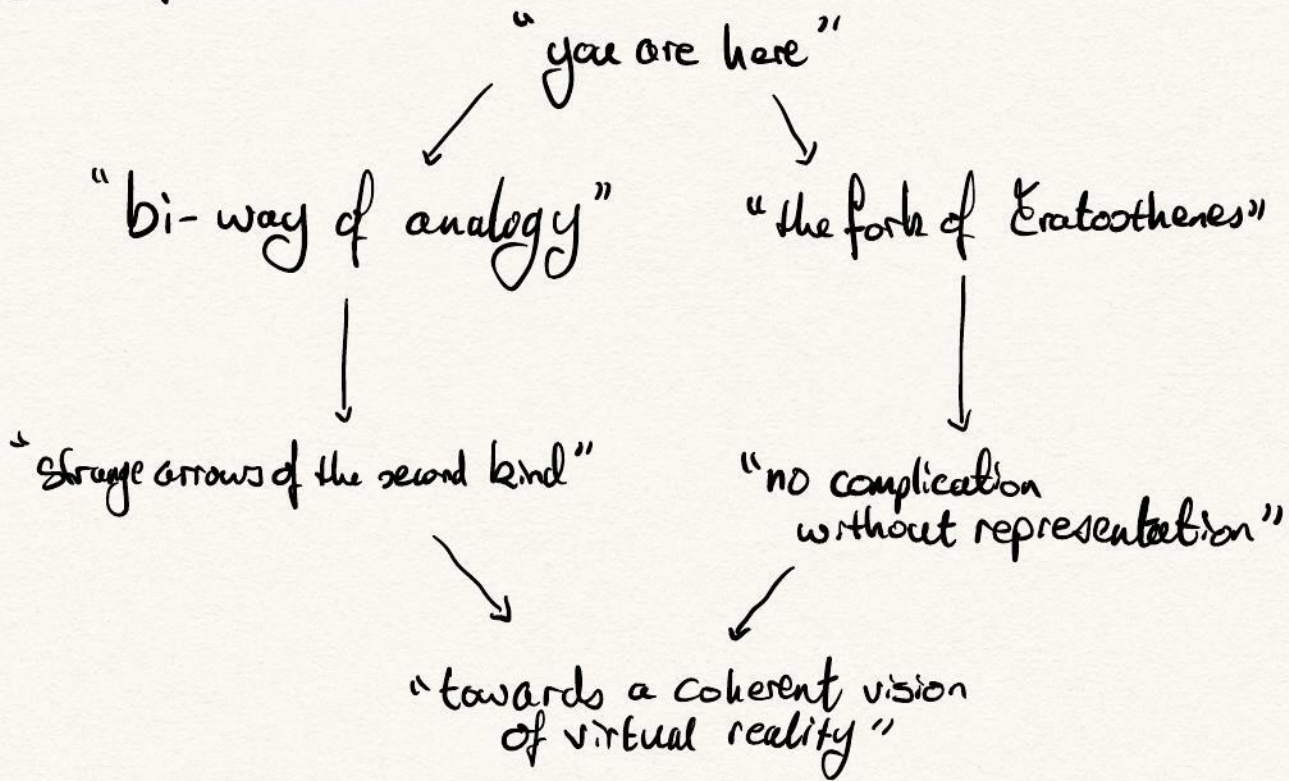 "you are here"
"bi-way of analogy"
"the fork of Eratosthenes"
"strange arrows of the second kind"
"no complication
without representation"
"towards a coherent vision
of virtual reality"